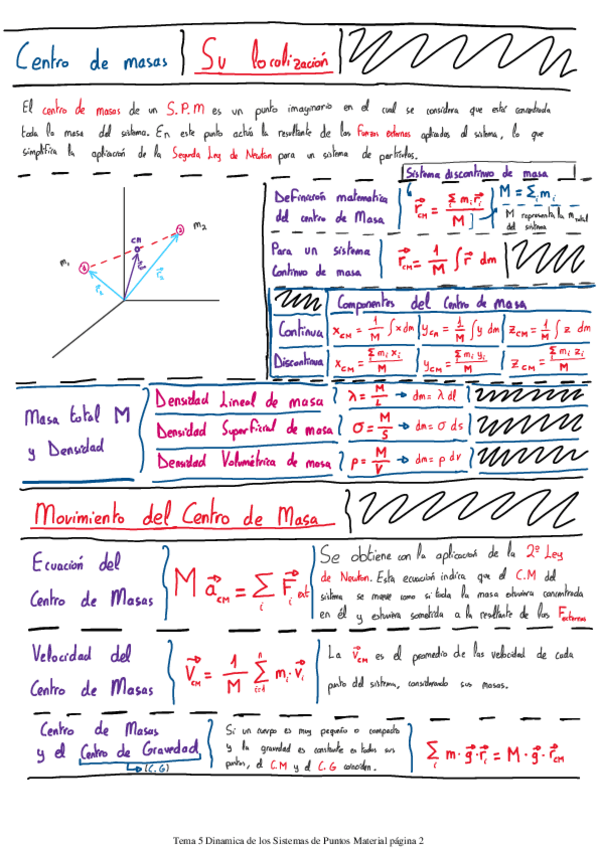 Centro de masas Su localización
El centro de masas de un S.P.M es un punto imaginario en el cual se considera que está concentrada
toda la masa del sistema. En este punto actúa la resultante de las Fuerzas externas aplicadas al sistema, lo que
simplifica la aplicación de la Segunda Ley de Newton para un sistema de partículas.
Sistema discontinuo de masa
m₁
CM
m₂
Definición matemática
del centro de Masa
r⃗CM = Σ mᵢ r⃗ᵢ / M
M = Σᵢ mᵢ
M representa la m total
del sistema
Para un sistema
Continuo de masa
r⃗CM = 1/M ∫ r⃗ dm
Componentes del Centro de masa
Continua xCM = 1/M ∫ x dm yCM = 1/M ∫ y dm zCM = 1/M ∫ z dm
Discontinua xCM = Σ mᵢ xᵢ / M yCM = Σ mᵢ yᵢ / M zCM = Σ mᵢ zᵢ / M
Masa total M
y Densidad
Densidad Lineal de masa λ = M/L → dm = λ dl
Densidad Superficial de masa σ = M/S → dm = σ ds
Densidad Volumétrica de masa ρ = M/V → dm = ρ dv
Movimiento del Centro de Masa
Ecuación del
Centro de Masas
M a⃗CM = Σᵢ F⃗ᵢ ext
Se obtiene con la aplicación de la 2ª Ley
de Newton. Esta ecuación indica que el C.M del
sistema se mueve como si toda la masa estuviera concentrada
en él y estuviera sometida a la resultante de las Fexternas
Velocidad del
Centro de Masas
V⃗CM = 1/M Σ mᵢ · v⃗ᵢ
La v⃗CM es el promedio de las velocidad de cada
punto del sistema, considerando sus masas.
Centro de Masas
y el Centro de Gravedad
(C.G)
Si un cuerpo es muy pequeño o compacto
y la gravedad es constante en todos sus
puntos, el C.M y el C.G coinciden.
Σᵢ m · g⃗ · r⃗ᵢ = M · g⃗ · r⃗CM
Tema 5 Dinamica de los Sistemas de Puntos Material página 2